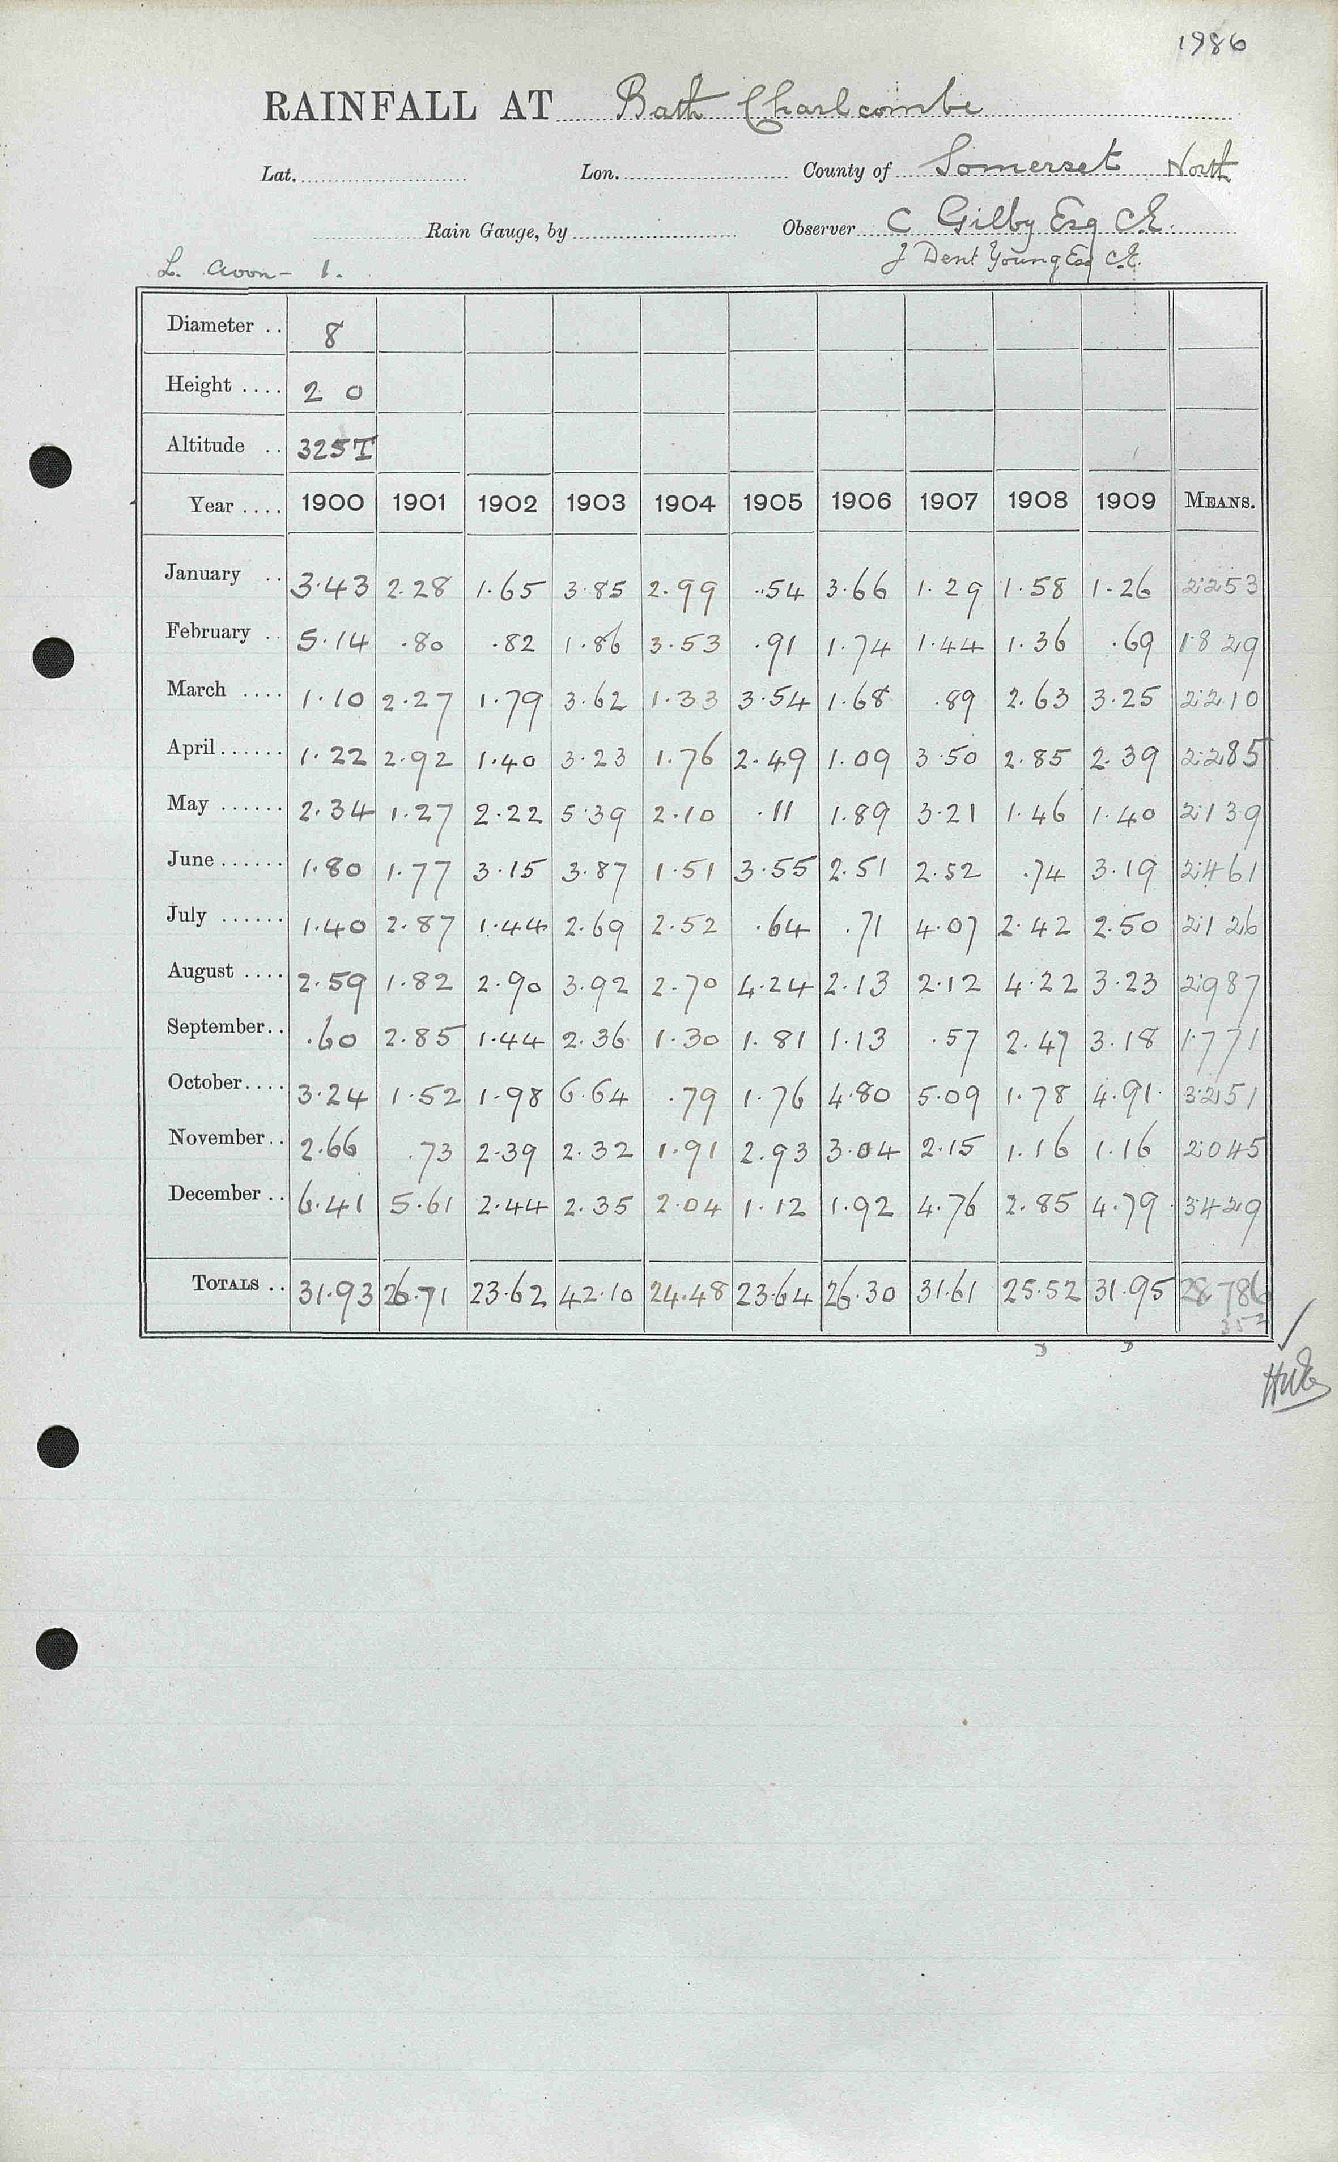 1986
RAINFALL AT Bath Charlcombe
Lat. Lon. County of Somerset North
Rain Gauge, by Observer C Gilby Esq C.E.
L. Avon - 1. J Dent Young Esq C.E.
Diameter .. 8
Height .... 2 0
Altitude .. 325T
Year .... 1900 1901 1902 1903 1904 1905 1906 1907 1908 1909 MEANS.
January .. 3.43 2.28 1.65 3.85 2.99 .54 3.66 1.29 1.58 1.26 2.253
February .. 5.14 .80 .82 1.86 3.53 .91 1.74 1.44 1.36 .69 1.829
March .... 1.10 2.27 1.79 3.62 1.33 3.54 1.68 .89 2.63 3.25 2.210
April ...... 1.22 2.92 1.40 3.23 1.76 2.49 1.09 3.50 2.85 2.39 2.285
May ...... 2.34 1.27 2.22 5.39 2.10 .11 1.89 3.21 1.46 1.40 2.139
June ...... 1.80 1.77 3.15 3.87 1.51 3.55 2.51 2.52 .74 3.19 2.461
July ...... 1.40 2.87 1.44 2.69 2.52 .64 .71 4.07 2.42 2.50 2.126
August .... 2.59 1.82 2.90 3.92 2.70 4.24 2.13 2.12 4.22 3.23 2.987
September .. .60 2.85 1.44 2.36 1.30 1.81 1.13 .57 2.47 3.18 1.771
October .... 3.24 1.52 1.98 6.64 .79 1.76 4.80 5.09 1.78 4.91 3.251
November .. 2.66 .73 2.39 2.32 1.91 2.93 3.04 2.15 1.16 1.16 2.045
December .. 6.41 5.61 2.44 2.35 2.04 1.12 1.92 4.76 2.85 4.79 3.429
TOTALS .. 31.93 26.71 23.62 42.10 24.48 23.64 26.30 31.61 25.52 31.95 28.786